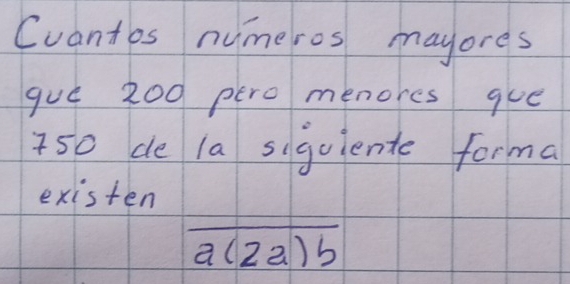 Cuantos números mayores
que 200 pero menores que
750 de la siguiente forma
existen
a(2a)b